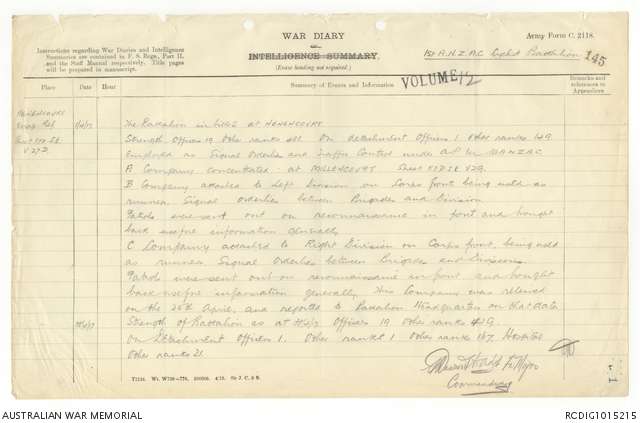 WAR DIARY
or
INTELLIGENCE SUMMARY.
(Erase heading not required.)
Army Form C. 2118.
Instructions regarding War Diaries and Intelligence
Summaries are contained in F. S. Regs., Part II.
and the Staff Manual respectively. Title pages
will be prepared in manuscript.
1st A.N.Z.A.C. Cyclist Battalion
145
VOLUME 12
Place
Date
Hour
Summary of Events and Information
Remarks and
references to
Appendices
HENENCOURT
The Battalion in billets at HENENCOURT
Strength Officers 19 Other ranks On detachment Officers 1 Other ranks 129
employed as Signal Orderlies and Traffic Control under A.P.M. 1st ANZAC
A Company concentrated at MILLENCOURT Sheet
B Company attached to Left Division on Corps front being used as
runners Signal orderlies between Brigades and Division
Patrols were sent out on reconnaissance in front and brought
back useful information generally
C Company attached to Right Division on Corps front, being used
as runners Signal Orderlies between Brigades and Divisions
Patrols were sent out on reconnaissance in front and brought
back useful information generally This Company was relieved
on the 26th April, and reported to Battalion Headquarters on that date
Strength of Battalion as at Officers 19 Other ranks
On Detachment Officers 1. Other ranks 1 Other ranks 147. Hospital
Other ranks 21
Major
Commanding
AUSTRALIAN WAR MEMORIAL
RCDIG1015215